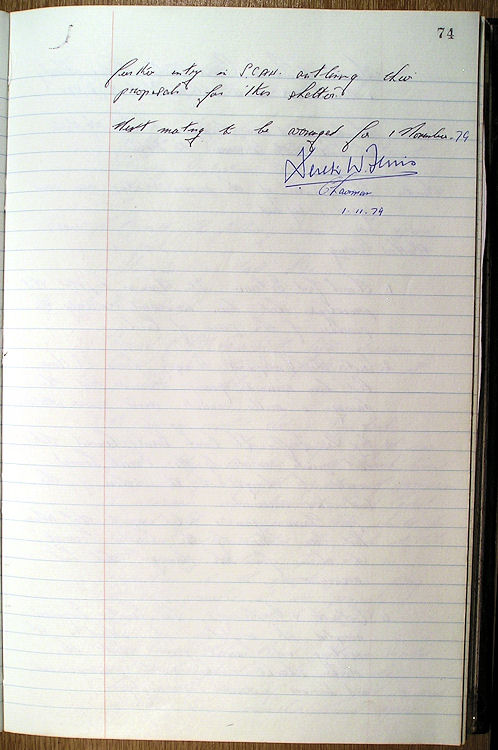 74
further entry in SCAN. outlining their
proposals for the shelter.
Next meeting to be arranged for 1 November. 79
Derek W. Ferris
Chairman
1.11.79